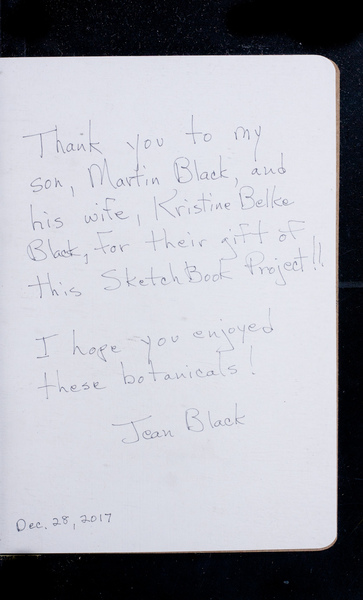 Thank you to my
son, Martin Black, and
his wife, Kristine Belke
Black, for their gift of
this SketchBook Project!!
I hope you enjoyed
these botanicals!
Jean Black
Dec. 28, 2017